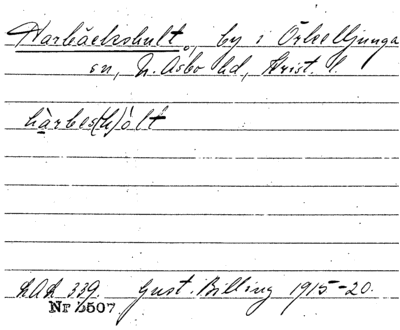 Harbäckshult, by i Örkelljunga
sn, N. Åsbo hd, Krist. l.
hàrbes(h)ólt
LAL 339. Gust. Billing 1915-20.
Nr 6507